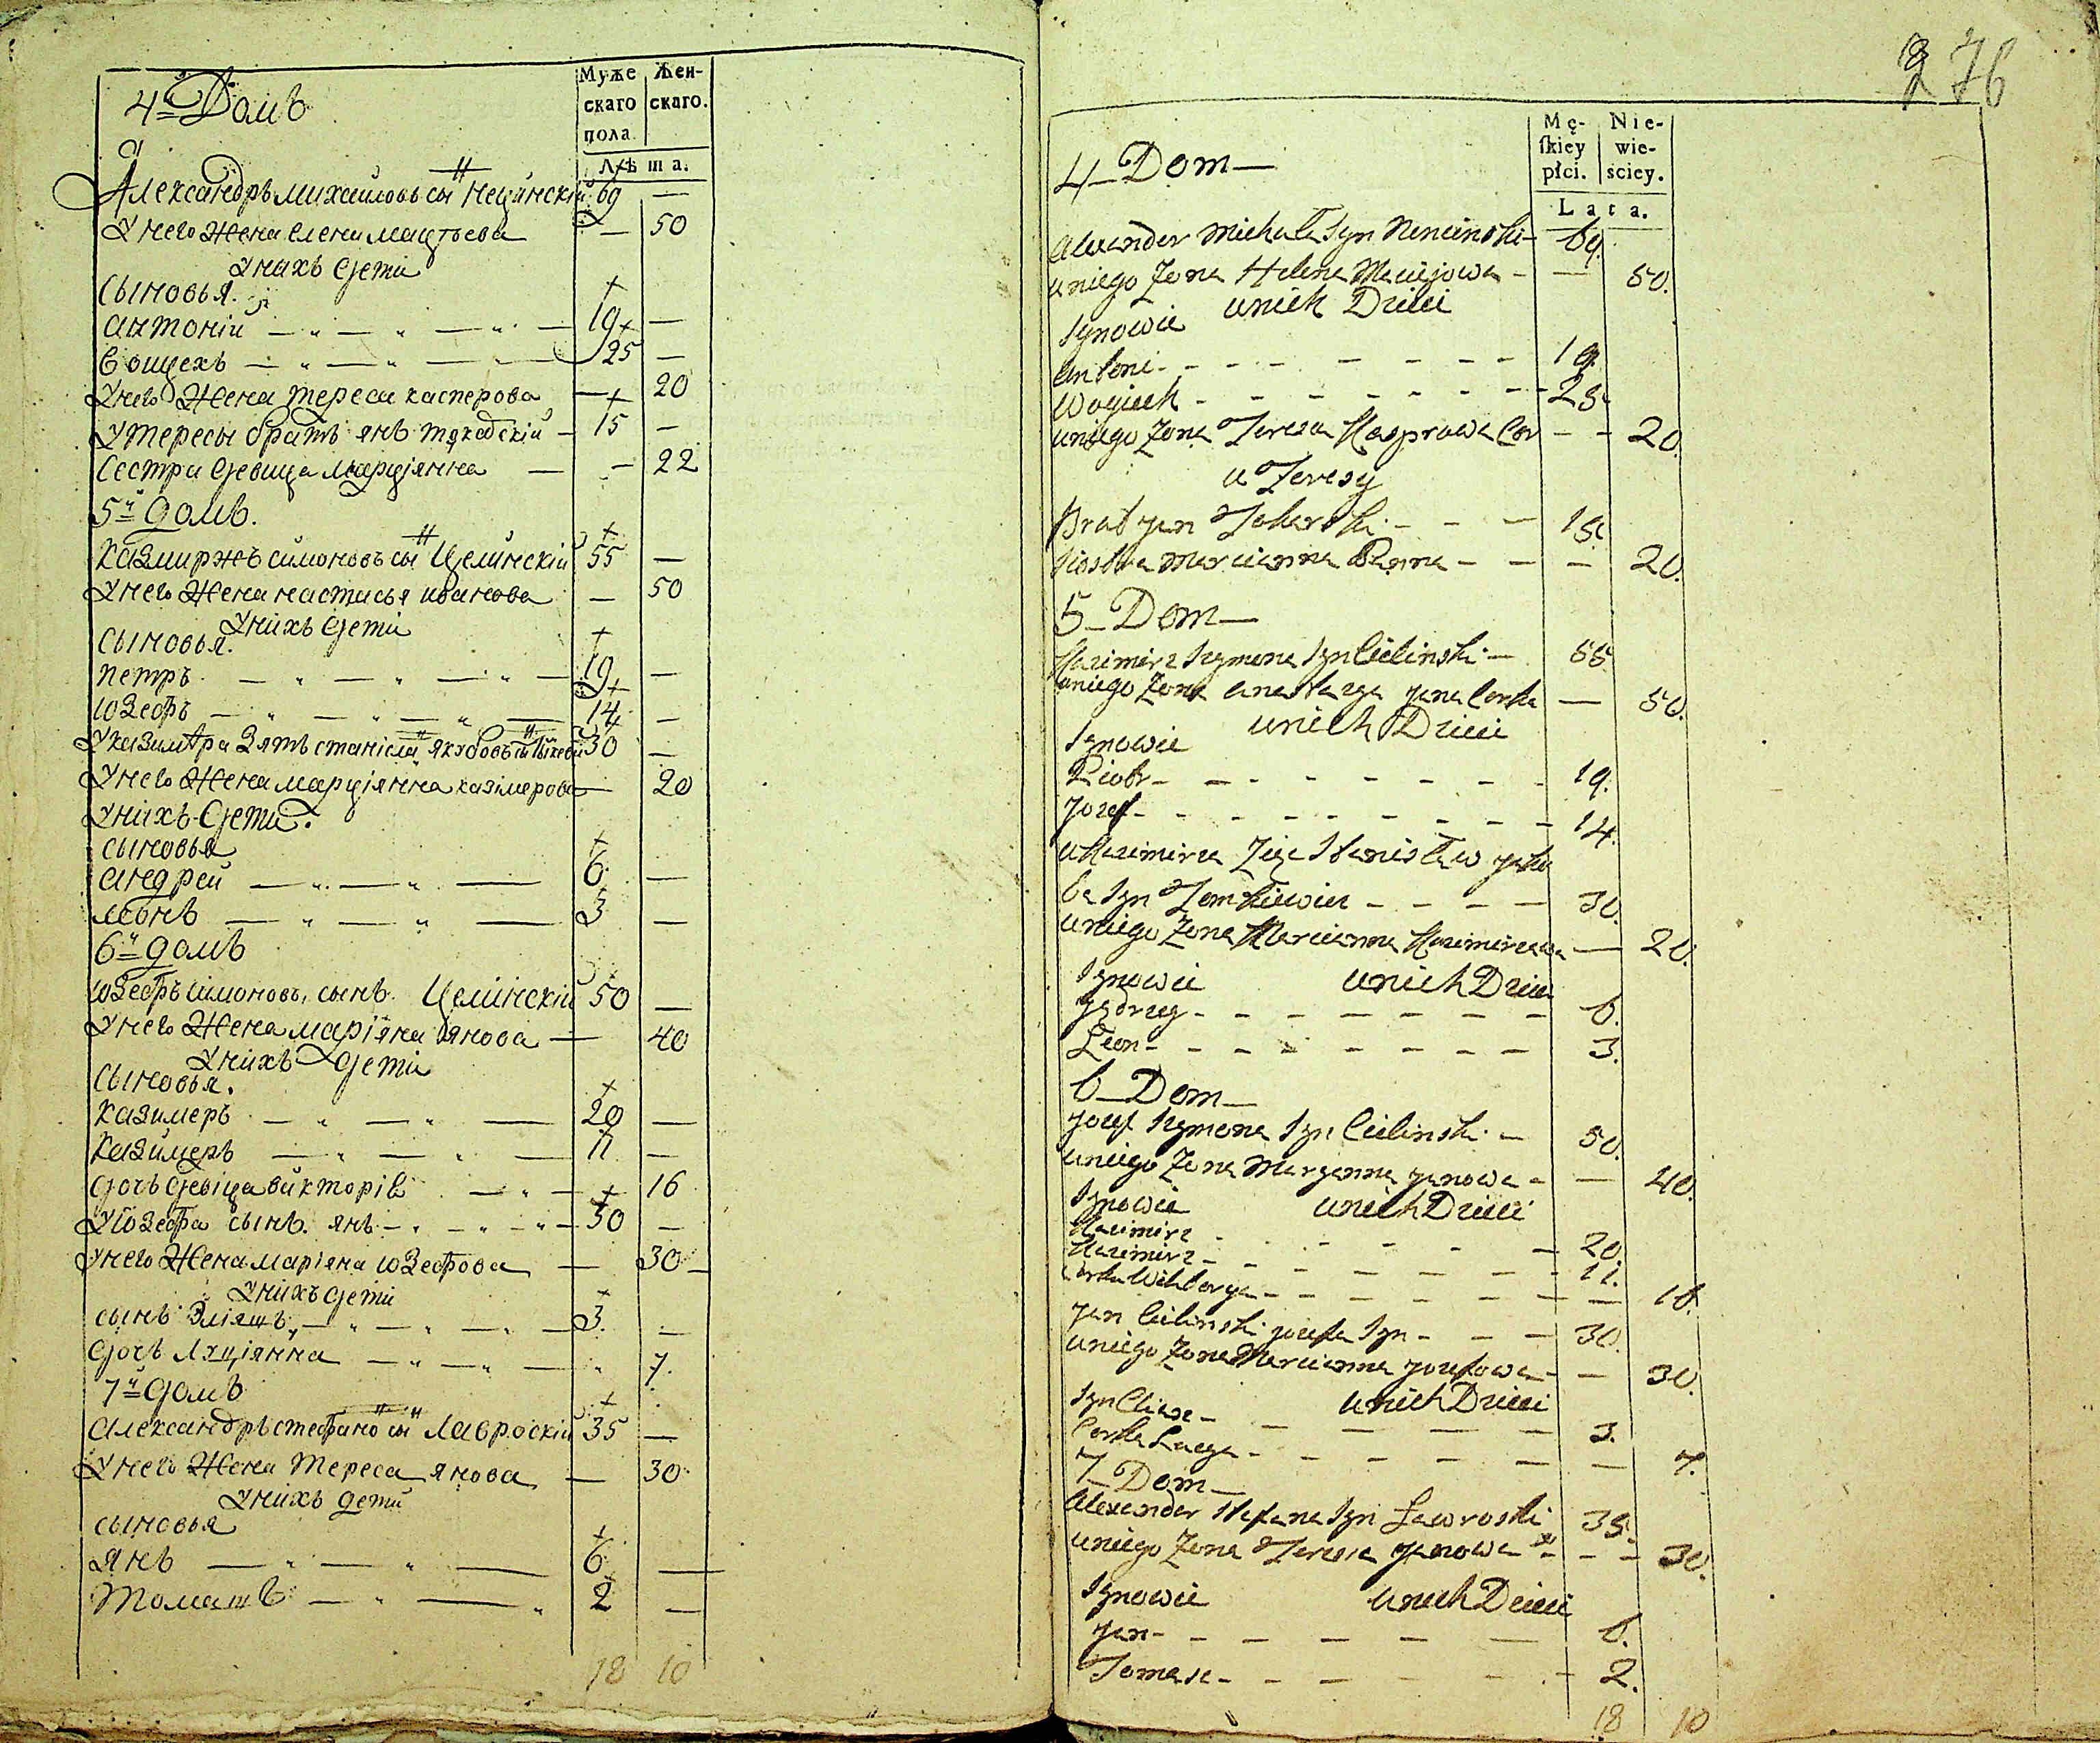 Муже Жен-
скаго скаго.
пола
Лѣта.
4й Домъ
Александръ михаиловъ сынъ Нецинскій 69 —
У него жена елена мацѣева — 50
У нихъ дети
Сыновья.
антоній — „ — „ — „ — 19 —
воицехъ — „ — „ — „ — 25 —
У него жена тереса касперова — 20
У тересы братъ янъ — 15 —
Сестра девица марціянна — — 22
5й домъ.
Казмиржъ симоновъ сынъ Целинскій 55 —
У него жена настасья иванова — 50
У нихъ дети
Сыновья.
петръ — „ — „ — „ — 19 —
юзефъ — „ — „ — „ — 14 —
У казимѣра зять станіслав якубовъ сынъ 30 —
У него жена марціянна казімерова — 20
У нихъ дети.
сыновья
андрей — „ — „ — 6 —
леонъ — „ — „ — 3 —
6й домъ
юзефъ симоновъ сынъ Целинскій 50 —
У него жена маріяна янова — 40
У нихъ дети
Сыновья.
казимеръ — „ — „ — 20 —
казимеръ — „ — „ — 11 —
дочь девица викторія — „ — 16
У юзефа сынъ янъ — „ — „ — „ — 30 —
У него жена маріяна юзефова — 30
У нихъ дети
сынъ Эліяшъ — „ — „ — „ — 3 —
дочь Луціянна — „ — „ — „ 7.
7й домъ
александръ стефано сынъ Лавроскій 35 —
У него жена тереса янова — 30
У нихъ дети
сыновья
янъ — „ — „ — 6 —
томашъ — „ — „ 2 —
18 10
276
Mę- Nie-
ſkiey wie-
płci. ściey.
Lata.
4 Dom
Alexander Michała Syn Nencinski 69.
u niego Zona Helena Maciejowa — 50.
u nich Dzieci
Synowie
Antoni 19.
Woyciech 25.
u niego Zona Teresa Kasprowa Cor 20.
u Teresy
Brat Jan Tokarski 15.
Siostra Marcianna Panna — 20.
5 Dom
Kazimirz Szymona Syn Cielinski 55.
u niego Zona Anastazya Jana Corka — 50.
u nich Dzieci
Synowie
Piotr 19.
Jozef 14.
u Kazimirza Zięc Stanisław Jaku
ba Syn Tomkiewicz 30.
u niego Zona Marcianna Kazimirzowa — 20.
Synowie u nich Dzieci
Jędrzey 6.
Leon 3.
6 Dom
Jozef Szymona Syn Cielinski 50.
u niego Zona Maryanna Janowa — 40.
Synowie u nich Dzieci
Kazimirz 20.
Kazimirz 11.
Corka Wiktorya — 16.
Jan Cielinski Jozefa Syn 30.
u niego Zona Marcianna Jozefowa — 30.
u nich Dzieci
Syn Eliasz 3.
Corka Lucya — 7.
7 Dom
Alexander Stefana Syn Lawroski 35.
u niego Zona Teressa Janowa — 30.
Synowie u nich Dzieci
Jan 6.
Tomasz 2.
18 10